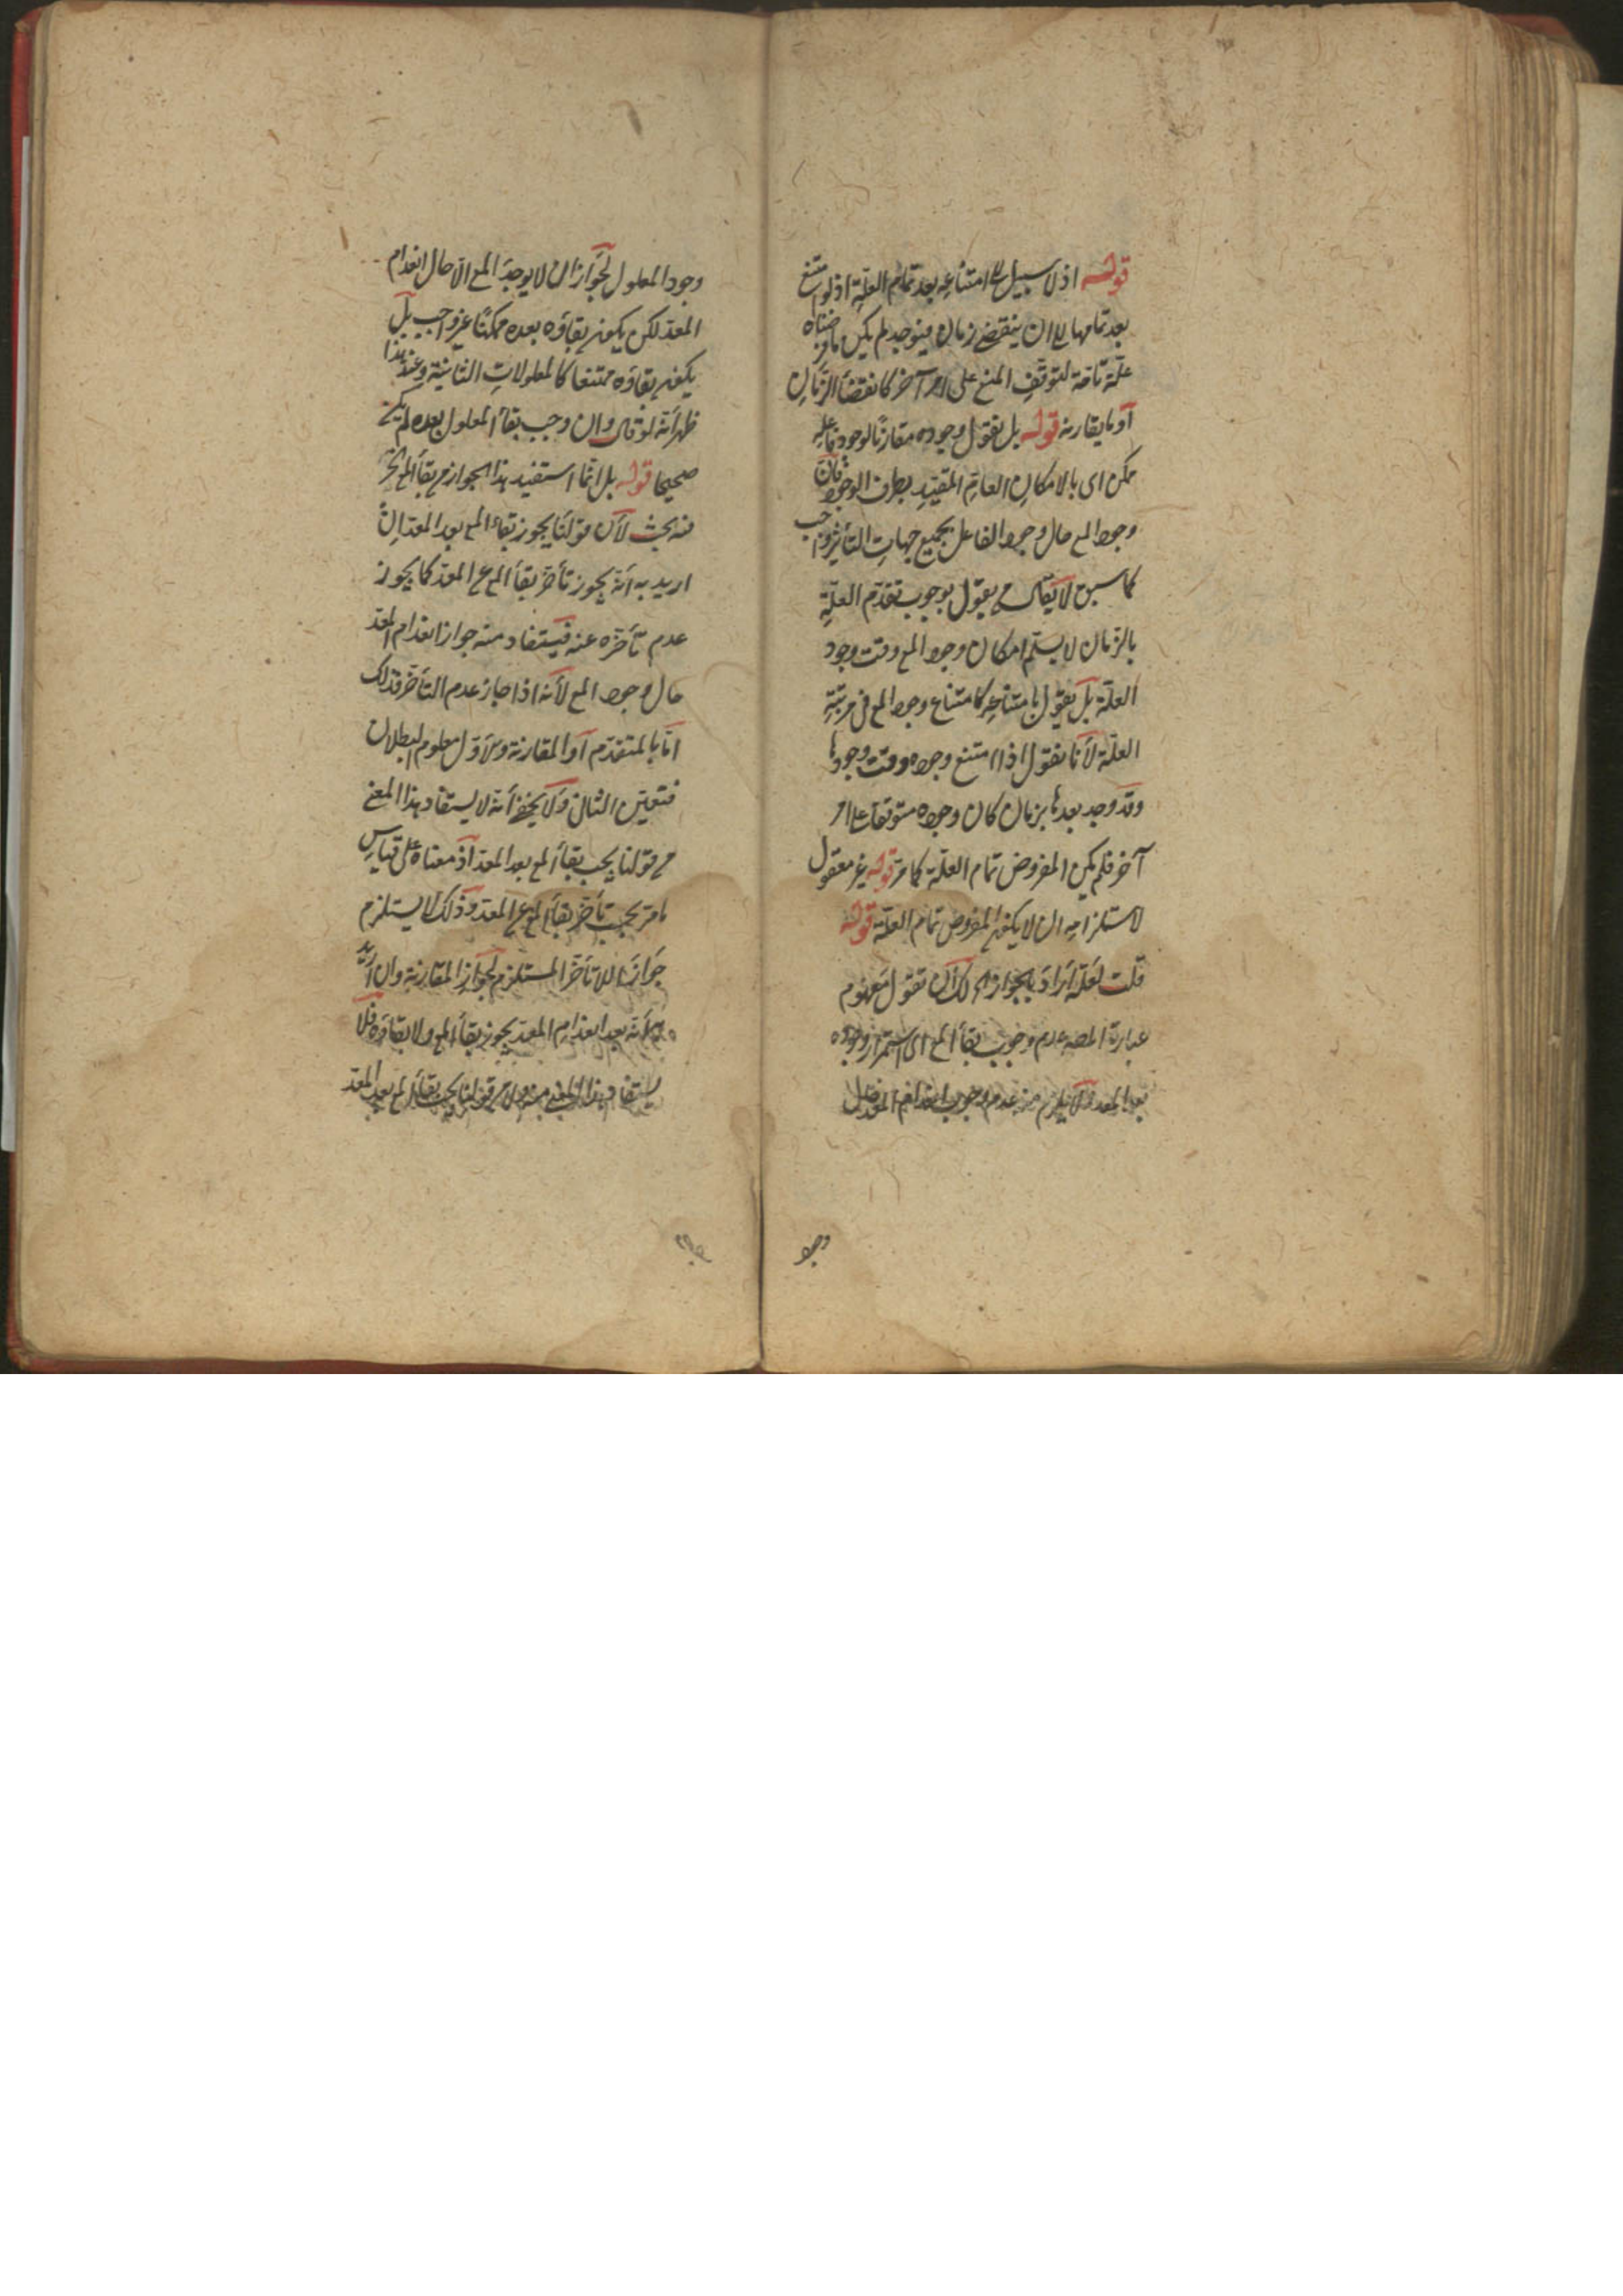 قوله اذ لا سبيل الى امتناعه بعد تمام العلة اذ لو امتنع
بعد تمامها الى ان ينقضي زمان فيوجد لم يكن ما فرضناه
علة تامة لتوقف المع على امر آخر كانقضأ الزمان
أو ما يقارنه قوله بل نقول وجوده مقارنا لوجود فاعله
ممكن اى بالامكان العام المقيد بطرف الوجود فان
وجود المع حال وجود الفاعل بجميع جهات التأثير واجب
كما سبق لا يقال من يقول بوجوب تقدم العلة
بالزمان لا يسلم امكان وجود المع وقت وجود
العلة بل يقول بامتناعه كامتناع وجود المع في مرتبة
العلة لأنا نقول اذا امتنع وجوده وقت وجودها
وقد وجد بعدها بزمان كان وجوده متوقفا على امر
آخر فلم يكن المفروض تمام العلة كما مر قوله غير معقول
لاستلزامه ان لا يكون المفروض تمام العلة قوله
قلت لعله اراد بالجواز لك أن تقول مفهوم
عبارة المصـ عدم وجوب بقأ المع اى استمرار وجوده
بعد المعد ولا يلزم من عدم وجوب انعدام المعد حال
وجود
وجود المعلول لجواز ان لا يوجد المع الا حال انعدام
المعد لكن يكون بقاؤه بعده ممكنا غير واجب بل
يكون بقاؤه ممتنعا كالمعلولات الثانية وعند هذا
ظهر أنه لو قال وان وجب بقأ المعلول بعده لم يكن
صحيحا قوله بل انما استفيد هذا الجواز من بقأ المع الخ
فيه بحث لأن قولنا يجوز بقاء المع بعد المعد ان
اريد به أنه يجوز تأخر بقأ المع عن المعد كما يجوز
عدم تأخره عنه فيستفاد منه جواز انعدام المعد
حال وجود المع لأنه اذا جاز عدم التأخر فذلك
اما بالتقدم أو المقارنة والأول معلوم البطلان
فتعين الثانى ولا يخفى أنه لا يستفاد هذا المعنى
من قولنا يجب بقأ المع بعد المعد اذ معناه على قياس
ما مر يجب تأخر بقأ المع عن المعد وذلك لا يستلزم
جواز اللا تأخر المستلزم لجواز المقارنة وان أريد
به أنه بعد انعدام المعد يجوز بقأ المع ولا بقاؤه فلا
يستفاد هذا المعنى منه ولا من قولنا يجب بقأ المع بعد المعد